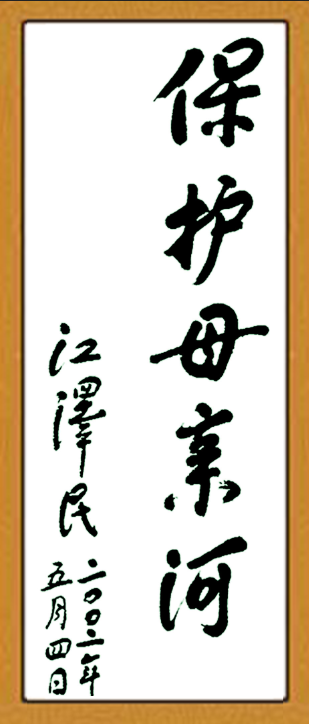 保护母亲河
江澤民
二〇〇二年
五月四日